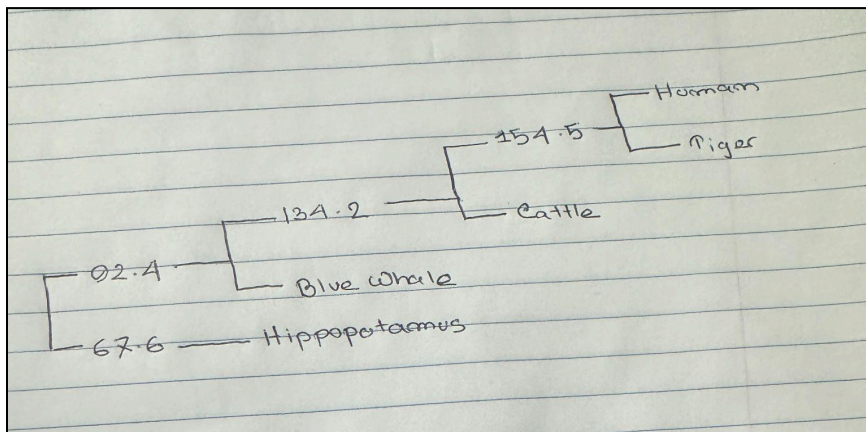 Human
154.5
Tiger
134.2
Cattle
02.4
Blue whale
67.6 Hippopotamus